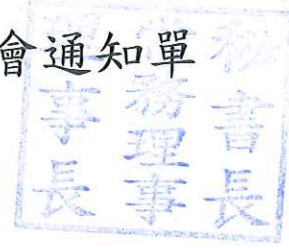 會通知單
秘書長
常務理事
理事長